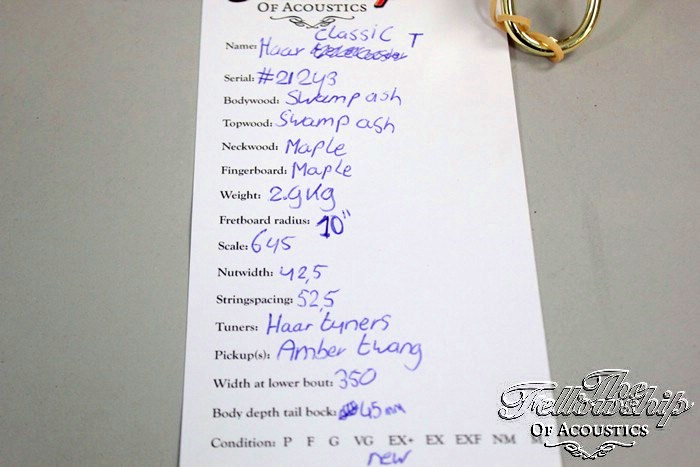 OF ACOUSTICS
Classic T
Name: Haar
Serial: #21243
Bodywood: Swamp ash
Topwood: Swamp ash
Neckwood: Maple
Fingerboard: Maple
Weight: 2.9Kg
Fretboard radius: 10"
Scale: 645
Nutwidth: 42,5
Stringspacing: 52,5
Tuners: Haar tuners
Pickup(s): Amber twang
Width at lower bout: 350
Body depth tail bock: 45 mm
Condition: P F G VG EX+ EX EXF NM
new
The
Fellowship
OF ACOUSTICS